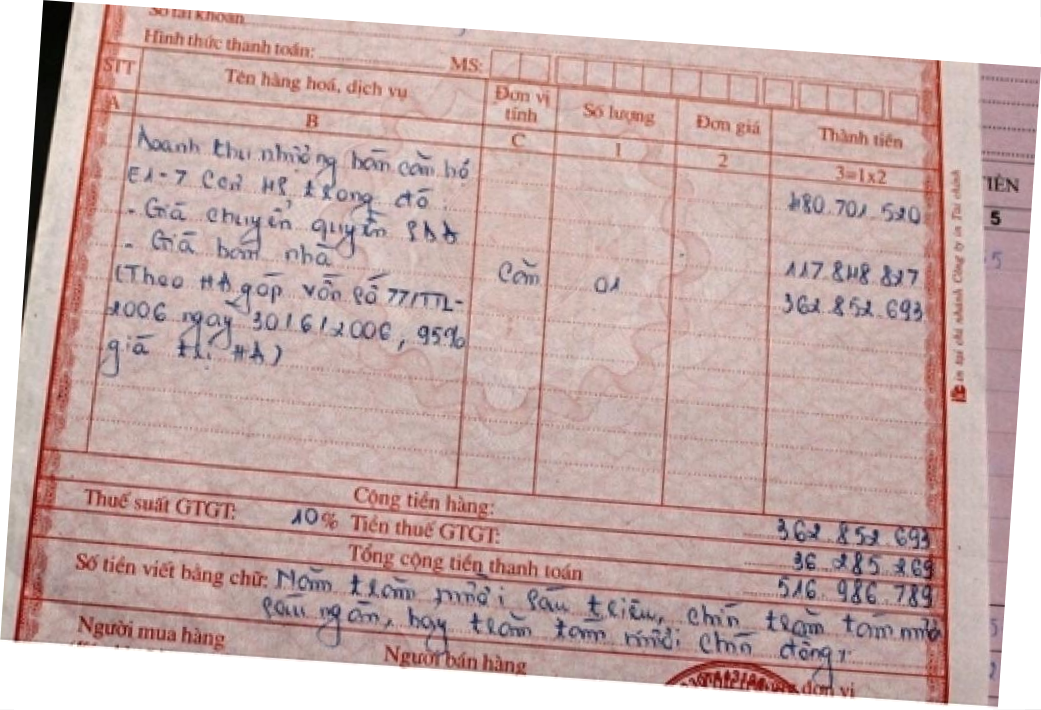 Số tài khoản
Hình thức thanh toán: MS:
STT Tên hàng hoá, dịch vụ Đơn vị tính Số lượng Đơn giá Thành tiền
A B C 1 2 3=1x2
Doanh thu nhượng bán căn hộ
E1-7 CC4 MĐ trong đó: 480.701.520
- Giá chuyển quyền SDĐ 117.848.827
- Giá bán nhà Căn 01 362.852.693
(Theo HĐ góp vốn số 77/TTL-
2006 ngày 30/6/2006, 95%
giá trị HĐ)
Cộng tiền hàng: 362.852.693
Thuế suất GTGT: 10% Tiền thuế GTGT: 36.285.269
Tổng cộng tiền thanh toán 516.986.789
Số tiền viết bằng chữ: Năm trăm mười sáu triệu, chín trăm tám mươi
sáu ngàn, bảy trăm tám mươi chín đồng
Người mua hàng Người bán hàng đơn vị
in tại chi nhánh Công ty in Tài chính
TIỀN
5